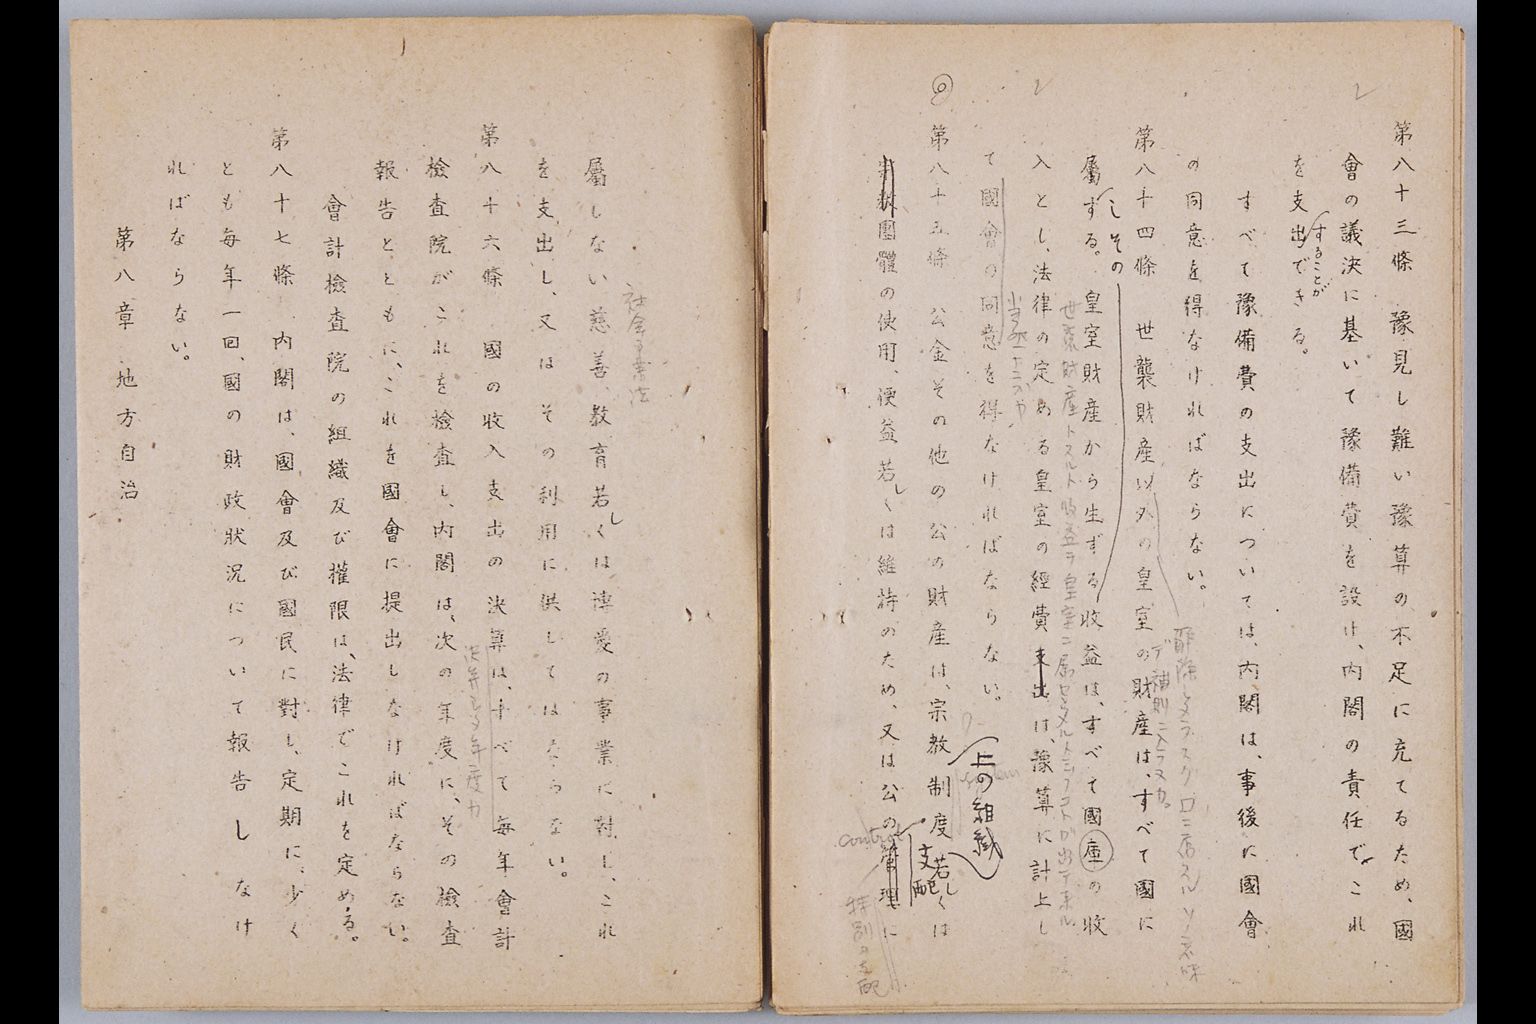 第八十三條　豫見し難い豫算の不足に充てるため、國
會の議決に基いて豫備費を設け、内閣の責任でこれ
を支出できる。
することが
すべて豫備費の支出については、内閣は、事後に國會
の同意を得なければならない。
第八十四條　世襲財産以外の皇室の財産は、すべて國に
屬する。皇室財産から生ずる収益は、すべて國庫の收
しその
入とし、法律の定める皇室の經費支出は、豫算に計上し
て國會の同意を得なければならない。
第八十五條　公金その他の公の財産は、宗教制度若しくは
上の組織
宗教團體の使用、便益若しくは維持のため、又は公の管理に
支配
control
特別の支配
屬しない慈善、教育若しくは博愛の事業に對し、これ
社会事業法
を支出し、又はその利用に供してはならない。
第八十六條　國の收入支出の決算は、すべて毎年會計
檢査院がこれを檢査し、内閣は、次の年度に、その檢査
報告とともに、これを國會に提出しなければならない。
會計檢査院の組織及び權限は、法律でこれを定める。
第八十七條　内閣は、國會及び國民に對し、定期に、少く
とも毎年一回、國の財政狀況について報告しなけ
ればならない。
第八章　地方自治